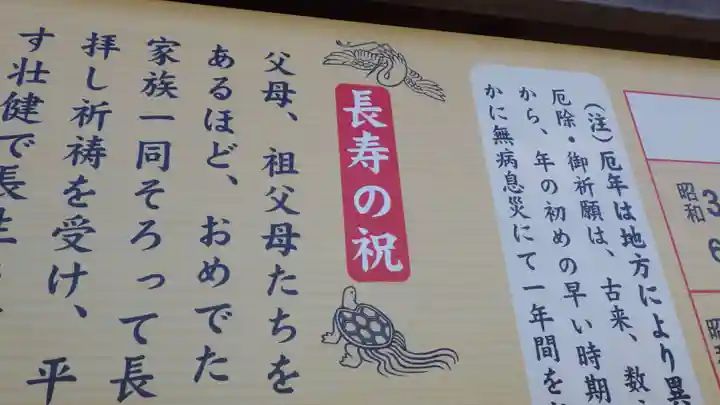 昭和
3
6
昭和
(注)厄年は地方により異
厄除・御祈願は、古来、数
から、年の初めの早い時期
かに無病息災にて一年間を
長寿の祝
父母、祖父母たちを
あるほど、おめでた
家族一同そろって長
拝し祈祷を受け、平
す壮健で長生